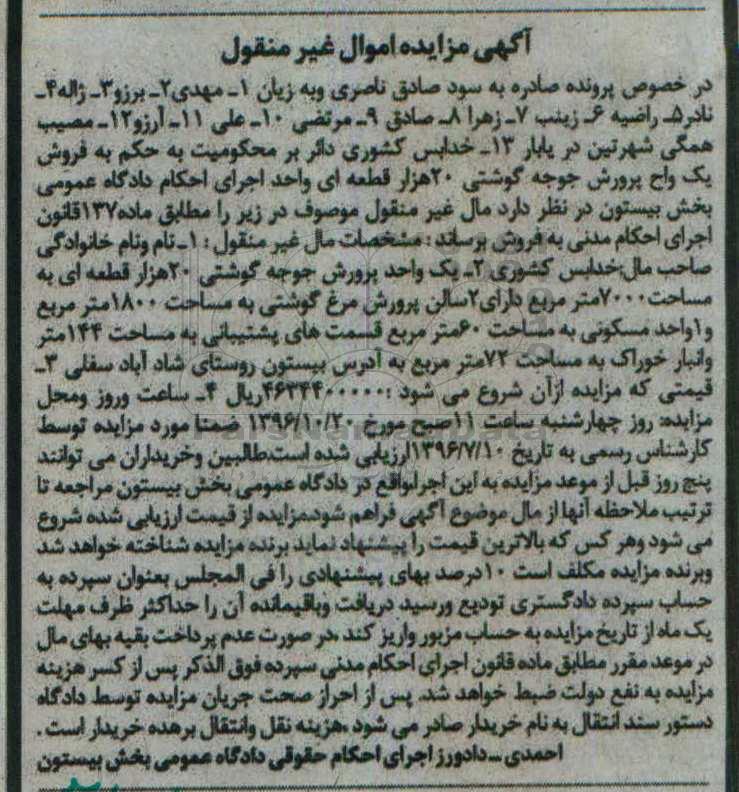 آگهی مزایده اموال غیر منقول
در خصوص پرونده صادره به سود صادق ناصری وبه زیان ۱ـ مهدی۲ـ برزو۳ـ ژاله۴ـ
نادر۵ـ راضیه ۶ـ زینب ۷ـ زهرا ۸ـ صادق ۹ـ مرتضی ۱۰ـ علی ۱۱ـ آرزو۱۲ـ مصیب
همگی شهرتین در یابار ۱۳ـ خدابس کشوری دائر بر محکومیت به حکم به فروش
یک واح پرورش جوجه گوشتی ۲۰هزار قطعه ای واحد اجرای احکام دادگاه عمومی
بخش بیستون در نظر دارد مال غیر منقول موصوف در زیر را مطابق ماده۱۳۷قانون
اجرای احکام مدنی به فروش برساند : مشخصات مال غیر منقول : ۱ـ نام ونام خانوادگی
صاحب مال:خدابس کشوری ۲ـ یک واحد پرورش جوجه گوشتی ۲۰هزار قطعه ای به
مساحت۷۰۰۰متر مربع دارای۲سالن پرورش مرغ گوشتی به مساحت ۱۸۰۰متر مربع
و۱واحد مسکونی به مساحت ۶۰متر مربع قسمت های پشتیبانی به مساحت ۱۴۴متر
وانبار خوراک به مساحت ۷۲متر مربع به آدرس بیستون روستای شاد آباد سفلی ۳ـ
قیمتی که مزایده ازآن شروع می شود :۴۶۳۴۴۰۰۰۰۰ریال ۴ـ ساعت وروز ومحل
مزایده: روز چهارشنبه ساعت ۱۱صبح مورخ ۱۳۹۶/۱۰/۲۰ ضمنا مورد مزایده توسط
کارشناس رسمی به تاریخ ۱۳۹۶/۷/۱۰ارزیابی شده است.طالبین وخریداران می توانند
پنج روز قبل از موعد مزایده به این اجراواقع در دادگاه عمومی بخش بیستون مراجعه تا
ترتیب ملاحظه آنها از مال موضوع آگهی فراهم شود.مزایده از قیمت ارزیابی شده شروع
می شود وهر کس که بالاترین قیمت را پیشنهاد نماید برنده مزایده شناخته خواهد شد
وبرنده مزایده مکلف است ۱۰درصد بهای پیشنهادی را فی المجلس بعنوان سپرده به
حساب سپرده دادگستری تودیع ورسید دریافت وباقیمانده آن را حداکثر ظرف مهلت
یک ماه از تاریخ مزایده به حساب مزبور واریز کند ،در صورت عدم پرداخت بقیه بهای مال
در موعد مقرر مطابق ماده قانون اجرای احکام مدنی سپرده فوق الذکر پس از کسر هزینه
مزایده به نفع دولت ضبط خواهد شد. پس از احراز صحت جریان مزایده توسط دادگاه
دستور سند انتقال به نام خریدار صادر می شود .هزینه نقل وانتقال برهده خریدار است .
احمدی ـ دادورز اجرای احکام حقوقی دادگاه عمومی بخش بیستون